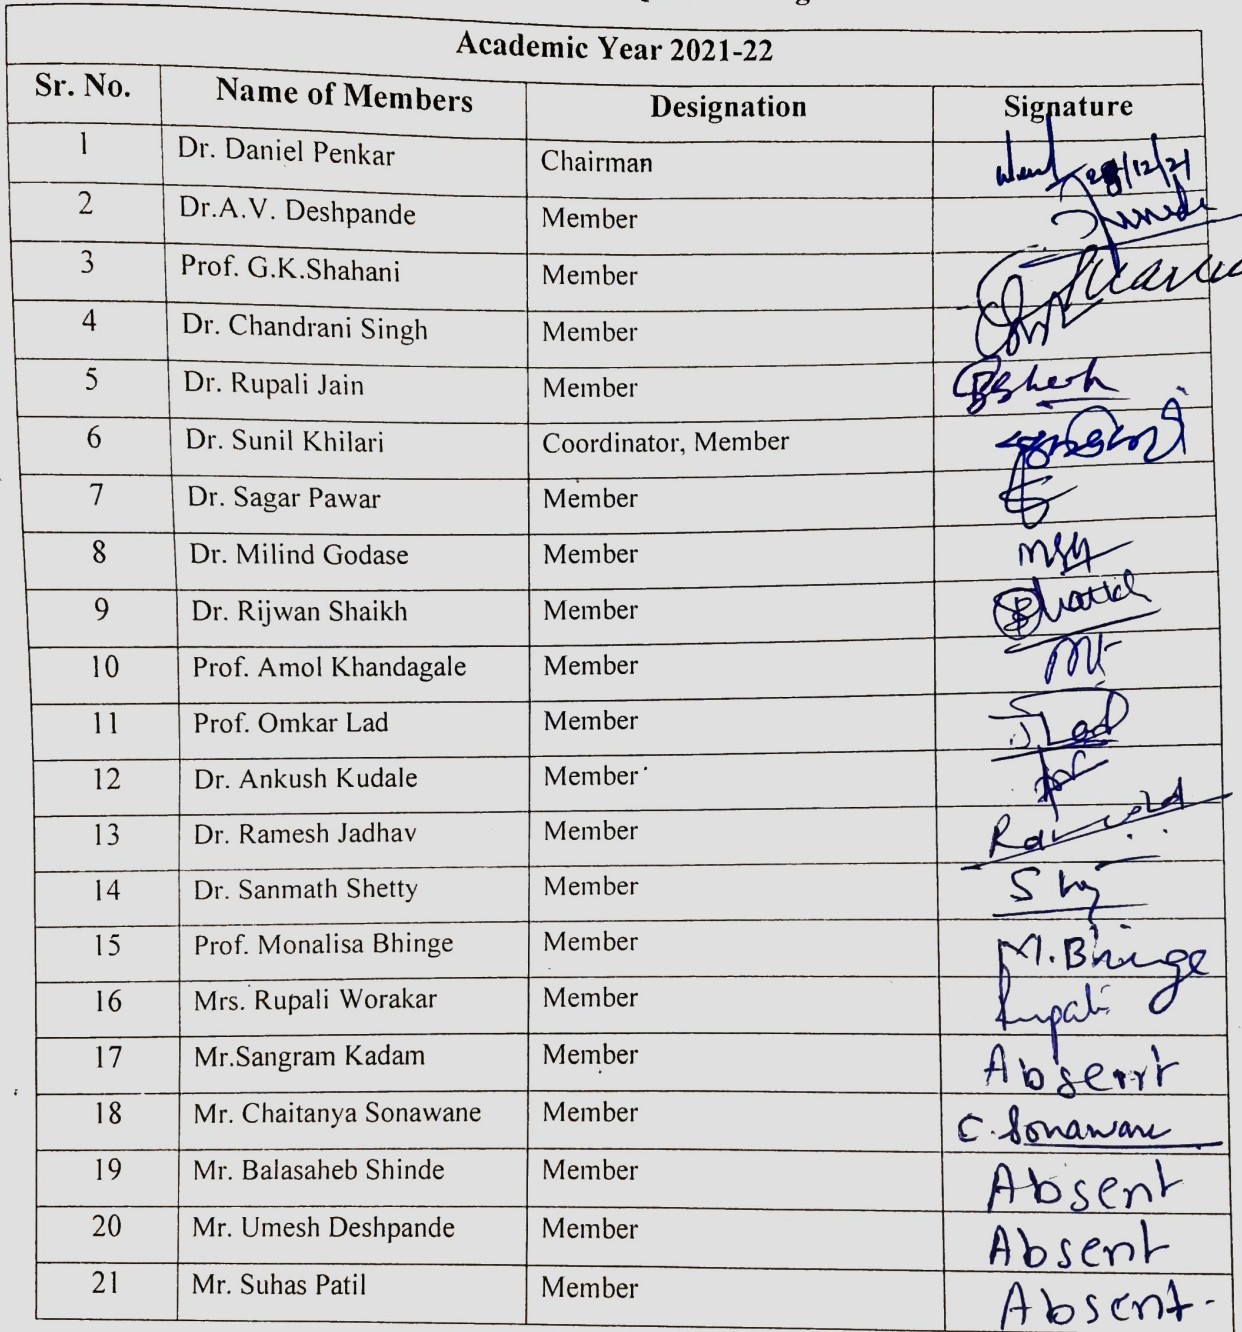 Academic Year 2021-22
Sr. No. Name of Members Designation Signature
1 Dr. Daniel Penkar Chairman 28/12/21
2 Dr.A.V. Deshpande Member
3 Prof. G.K.Shahani Member
4 Dr. Chandrani Singh Member
5 Dr. Rupali Jain Member
6 Dr. Sunil Khilari Coordinator, Member
7 Dr. Sagar Pawar Member
8 Dr. Milind Godase Member
9 Dr. Rijwan Shaikh Member
10 Prof. Amol Khandagale Member
11 Prof. Omkar Lad Member
12 Dr. Ankush Kudale Member
13 Dr. Ramesh Jadhav Member
14 Dr. Sanmath Shetty Member
15 Prof. Monalisa Bhinge Member M. Bhinge
16 Mrs. Rupali Worakar Member Rupali
17 Mr.Sangram Kadam Member Absent
18 Mr. Chaitanya Sonawane Member C. Sonawane
19 Mr. Balasaheb Shinde Member Absent
20 Mr. Umesh Deshpande Member Absent
21 Mr. Suhas Patil Member Absent